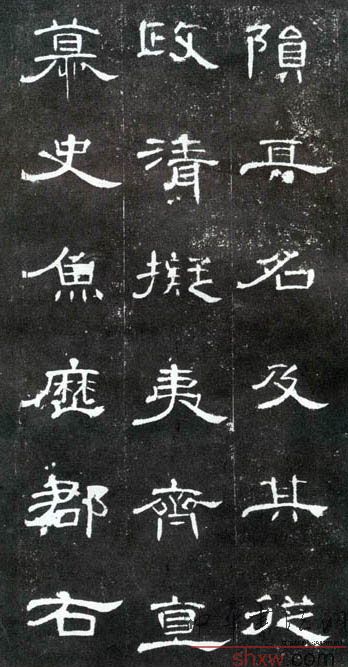 隕其名及其從
政清擬夷齊直
慕史魚歷郡右
shxw.com